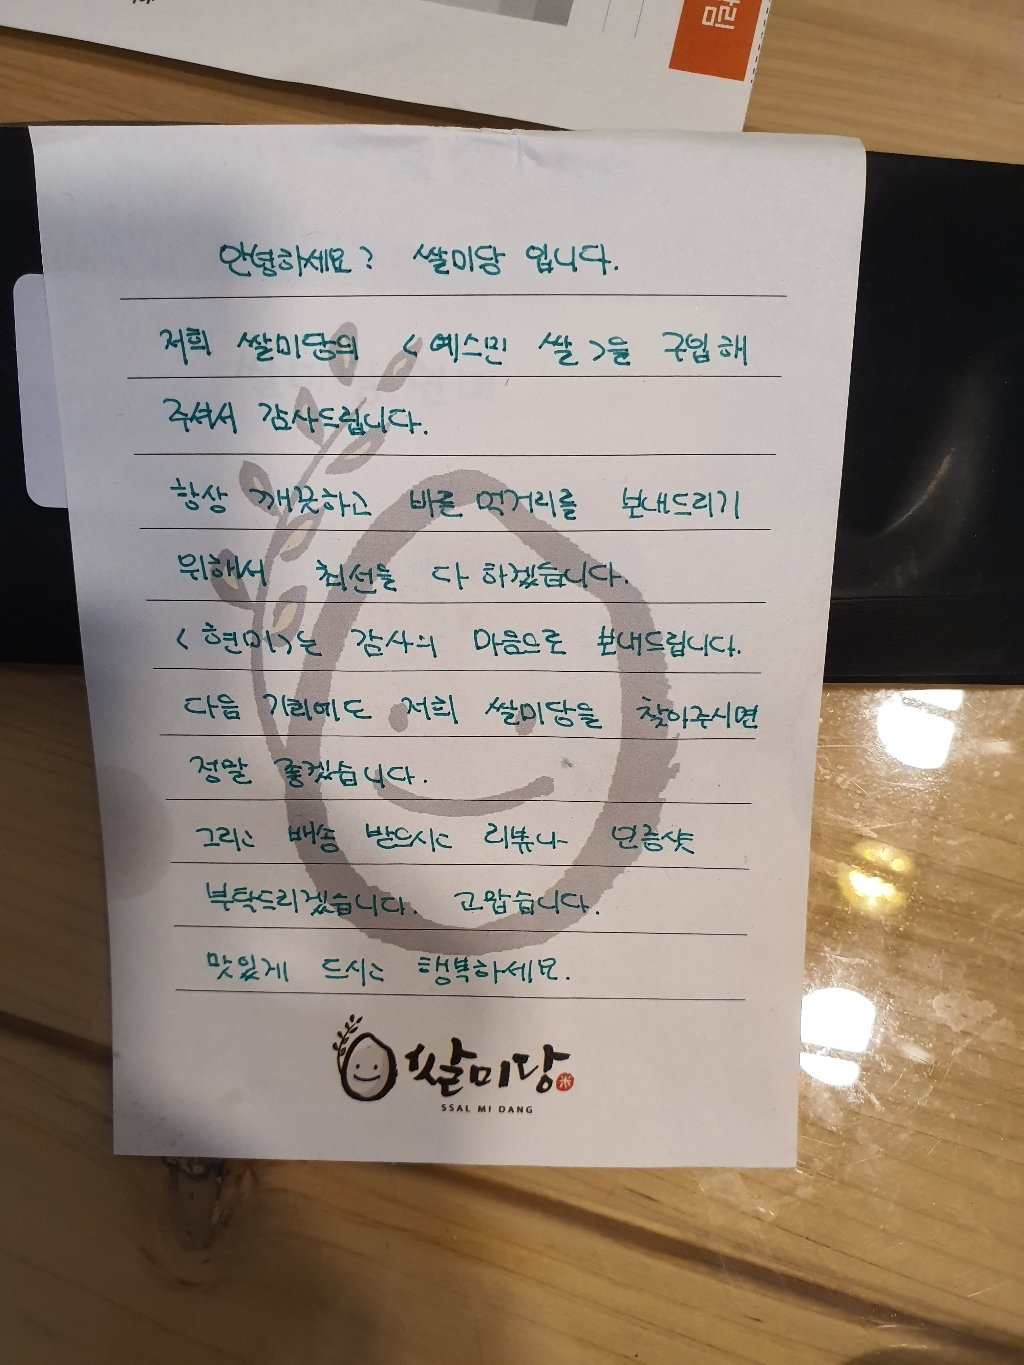 림
안녕하세요? 쌀미당 입니다.
저희 쌀미당의 <예스민 쌀>을 구입해
주셔서 감사드립니다.
항상 깨끗하고 바른 먹거리를 보내드리기
위해서 최선을 다 하겠습니다.
<현미>는 감사의 마음으로 보내드립니다.
다음 기회에도 저희 쌀미당을 찾아주시면
정말 좋겠습니다.
그리고 배송 받으시고 리뷰나 인증샷
부탁드리겠습니다. 고맙습니다.
맛있게 드시고 행복하세요.
쌀미당 米
SSAL MI DANG